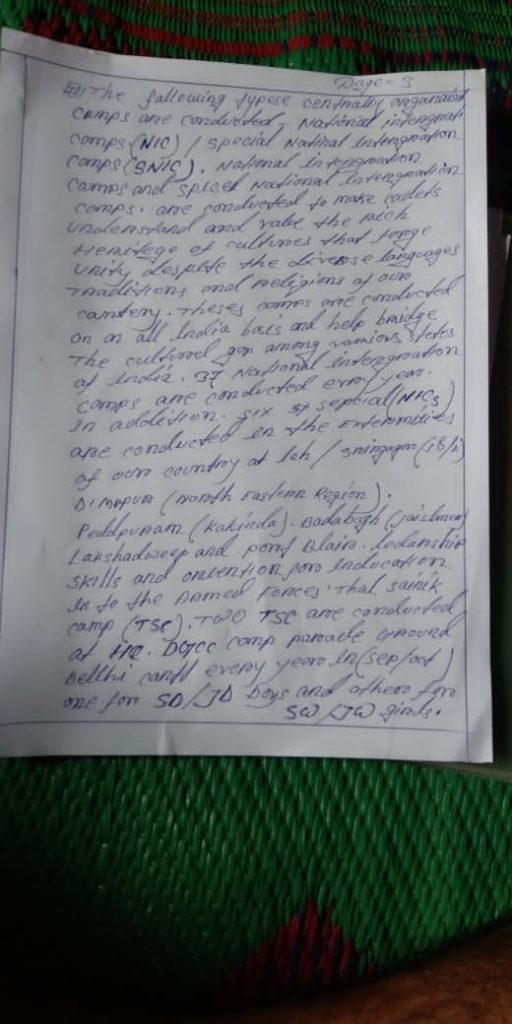 Page - 3
The following typese centrally organaised
camps are conducted - National intengrati
camps (NIC) / special Natinal Intengnation
camps (SNIC). National Intengnation
Camps and speical National Intengnation
camps. are conducted to make cadets
understand and value the rich
Heritege of cultures that forge
unity despite the diverse languages
Traditions and religions of our
country. Theses camps are conducted
on an all India basis and help braidge
The cultural gap among various states
of India. 37 National intengnation
camps are conducted every year.
In addition. six sepcial (NICs)
are conducted in the Extremities
of our country at leh / sringagra
Dimapur (North Eastern Region).
Peddpuram (Kakinda). Badabagh (jaislmer)
Lakshadweep and port Blair. ledarship
skills and for inducation
in to the Armed Forces' Thal sainik
camp (TSC). TWO TSC are conducted
at HQ. DGCC camp parade ground
Dellhi cantt every year in (sep/oct)
one for SD/JD boys and other for
SW/JW girls.